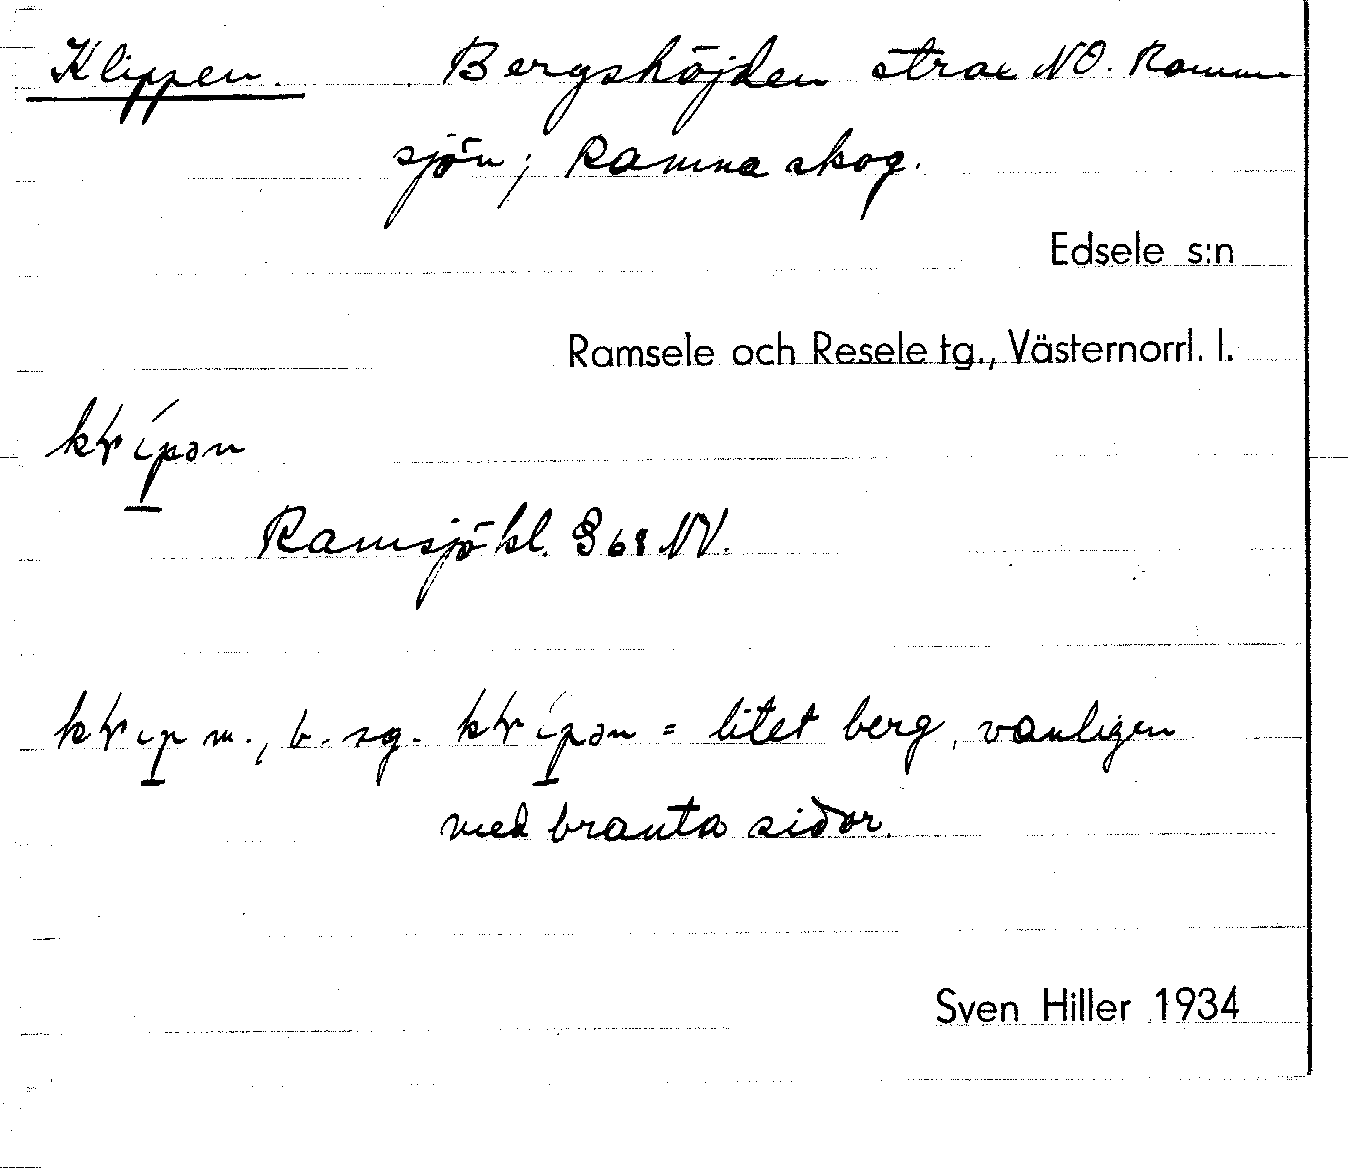 Klippen. Bergshöjden strax NO. Ramm
sjön; Ramna skog.
Edsele s:n
Ramsele och Resele tg., Västernorrl. l.
Ramsjökl. § 68 NV.
m., b. sg. = litet berg, vanligen
med branta sidor.
Sven Hiller 1934